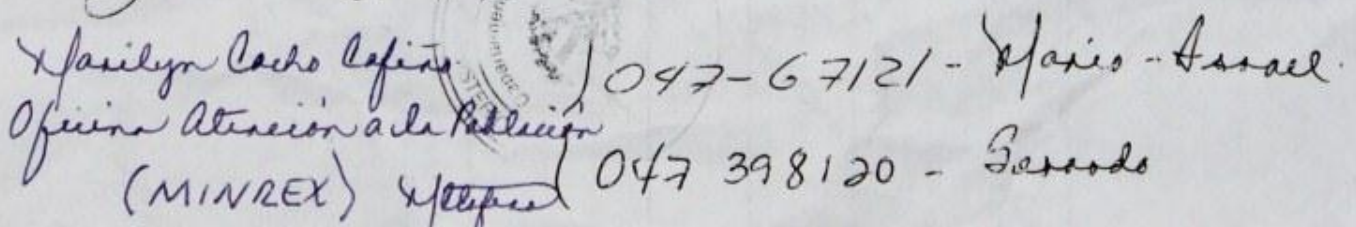 Marilyn Cacho Cafiña
Oficina Atención a la Población
(MINREX)
047-67121 - Mario - Assael
047 398120 - Gerardo